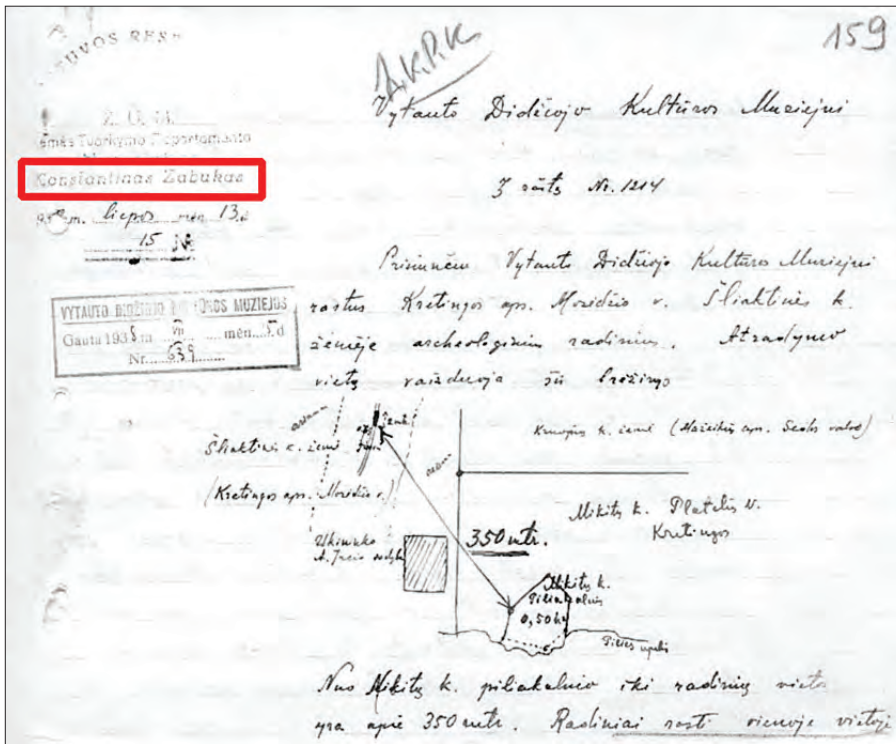 159
A.K.P.K.
Ž. Ū. M.
Žemės Tvarkymo Departamento
Konstantinas Zabukas
m. liepos mėn. 13 d.
15 №
Vytauto Didžiojo Kultūros Muziejui
Į raštą Nr. 1214
VYTAUTO DIDŽIOJO KULTŪROS MUZIEJUS
Gauta 1938 m. VII mėn. d
Nr. 639
Vytauto Didžiojo Kultūros Muziejui
rastus Kretingos aps. Mosėdžio v. Šliaktinės k.
žemėje archeologinius radinius. Atradymo
vietą vaizduoja šis brėžinys
Šliaktinės k. žemė
(Kretingos aps. Mosėdžio v.)
(Mažeikių aps. Sedos valsč.)
350 mtr.
Mikitų k. Platelių v.
Kretingos
Ūkininko
Mikitų k.
Piliakalnis
0,50 ha
upelis
Nuo Mikitų k. piliakalnio iki radinių vieta
yra apie 350 mtr. Radiniai rasti vienoje vietoje